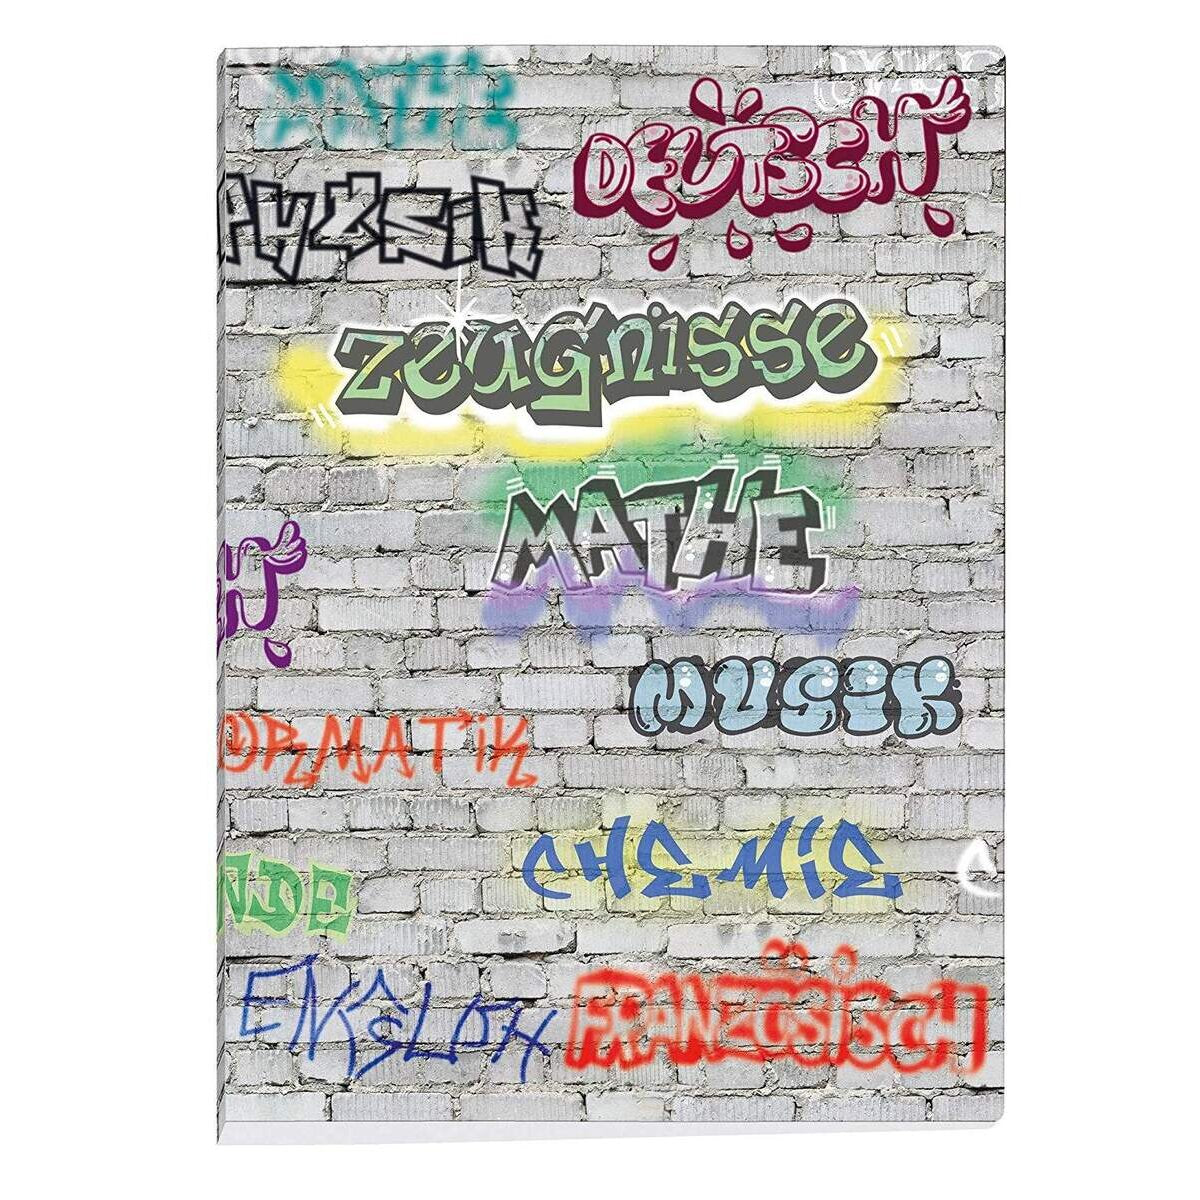 MATHE
DEUTSCH
PHYSIK
ZEUGNISSE
MATHE
H
MUSIK
ORMATIK
CHEMIE
C
NDE
ENGLISCH
FRANZÖSISCH